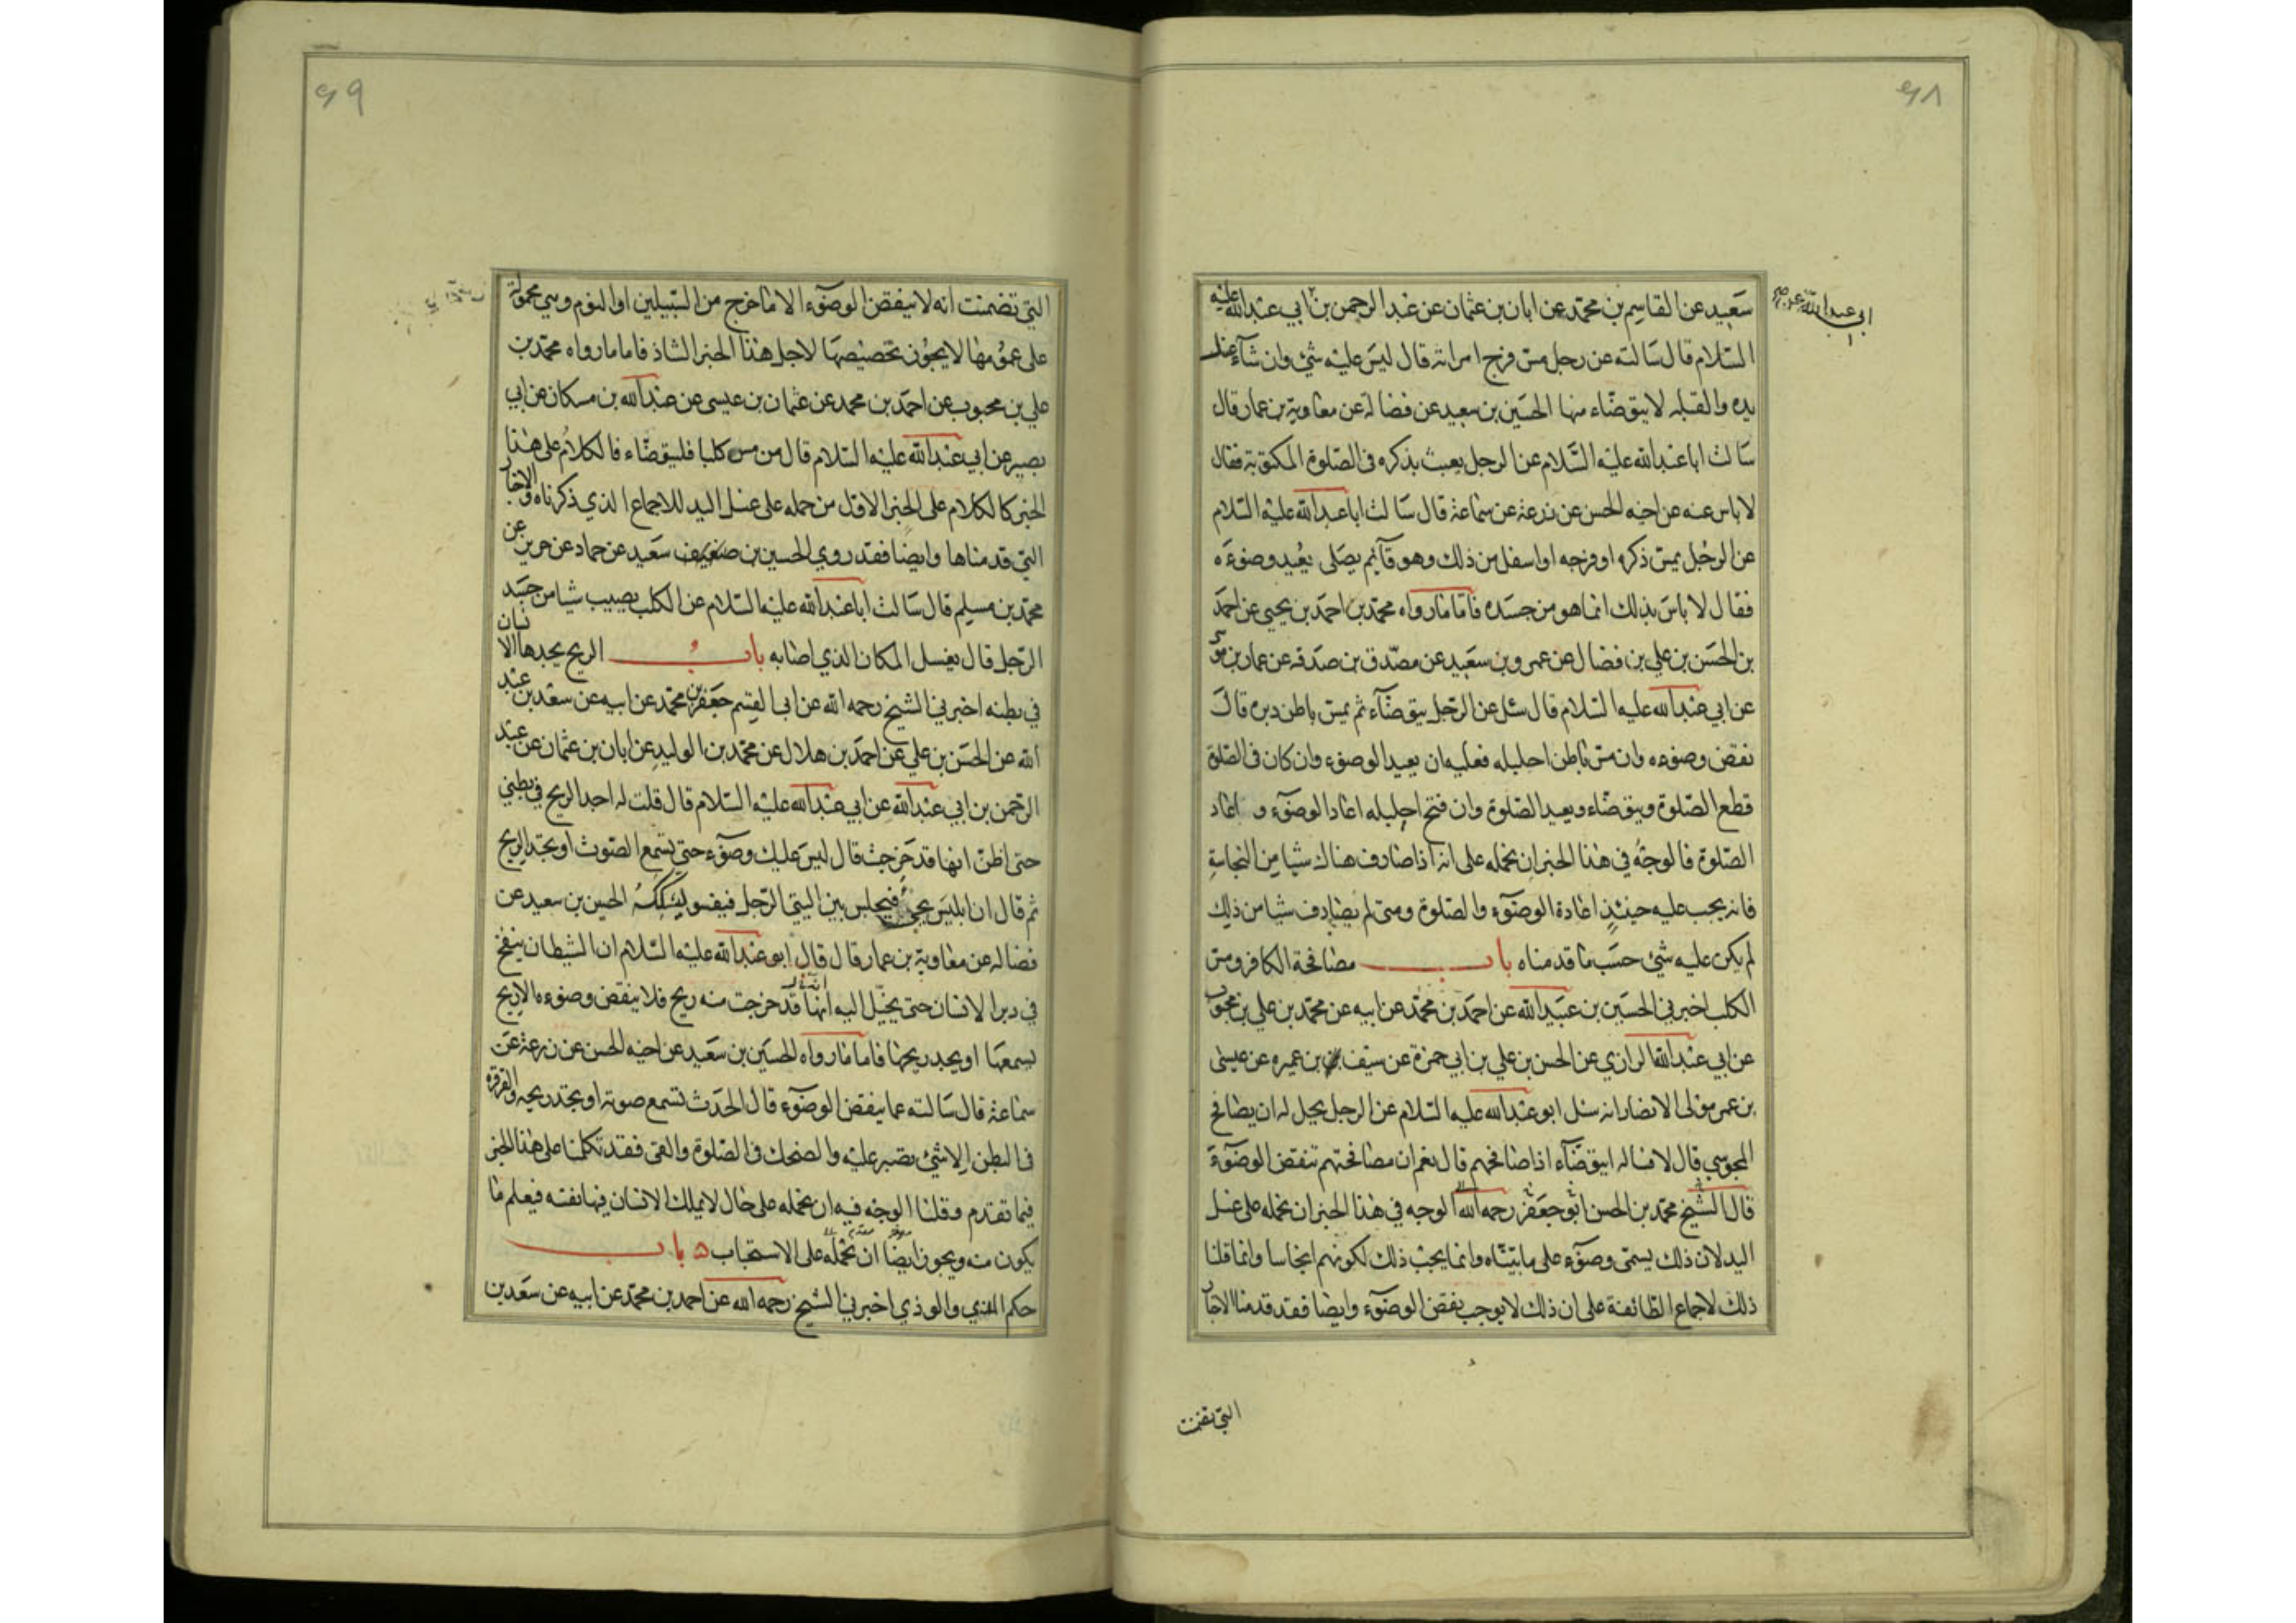 ۶۸
سعيد عن القاسم بن محمد عن ابان بن عثمان عن عبد الرحمن بن ابي عبد الله عليه
ابي عبد الله عن
السلام قال سالته عن رجل مس فرج امراته قال ليس عليه شئ وان شآء غسل
يده والقبله لا يتوضاء منها الحسين بن سعيد عن فضالة عن معاوية بن عمار قال
سالت ابا عبد الله عليه السلام عن الرجل يعبث بذكره في الصلوة المكتوبة فقال
لا باس عنه عن اخيه الحسن عن زرعة عن سماعة قال سالت ابا عبد الله عليه السلام
عن الرجل يمس ذكره او فرجه او اسفل من ذلك وهو قآئم يصلى يعيد وضوءه
فقال لا باس بذلك انما هو من جسده فاما ما رواه محمد بن احمد بن يحيى عن احمد
بن الحسن بن علي بن فضال عن عمرو بن سعيد عن مصدق بن صدقه عن عمار بن موسى
عن ابي عبد الله عليه السلام قال سئل عن الرجل يتوضآء ثم يمس باطن دبره قال
نقض وضوءه وان مس باطن احليله فعليه ان يعيد الوضوء وان كان في الصلوة
قطع الصلوة ويتوضاء ويعيد الصلوة وان فتح احليله اعاد الوضوء و اعاد
الصلوة فالوجه في هذا الخبر ان نحمله على انه اذا صادف هناك شيا من النجاسة
فانه يجب عليه حينئذ اعادة الوضوء والصلوة ومتى لم يصادف شيا من ذلك
لم يكن عليه شئ حسب ما قدمناه باب مصافحة الكافر ومس
الكلب اخبرني الحسين بن عبيد الله عن احمد بن محمد عن ابيه عن محمد بن علي بن محبوب
عن ابي عبد الله الرازي عن الحسن بن علي بن ابي حمزة عن سيف بن عميره عن عيسى
بن عمر مولى الانصار انه سئل ابو عبد الله عليه السلام عن الرجل يحل له ان يصافح
المجوسي قال لا فساله ايتوضآء اذا صافحهم قال نعم ان مصافحتهم تنقض الوضوء
قال الشيخ محمد بن الحسن ابو جعفر رحمه الله الوجه في هذا الخبر ان نحمله على غسل
اليد لان ذلك يسمى وضوء على ما بيناه وانما يجب ذلك لكونهم انجاسا وانما قلنا
ذلك لاجماع الطائفة على ان ذلك لا يوجب نقض الوضوء وايضا فقد قدمنا الاخبار
التي تضمنت
۶۹
التي تضمنت انه لا ينقض الوضوء الا ما خرج من السبيلين او النوم وهي محمولة
على عمومها لا يجوز تخصيصها لاجل هذا الخبر الشاذ فاما ما رواه محمد بن
علي بن محبوب عن احمد بن محمد عن عثمان بن عيسى عن عبد الله بن مسكان عن ابي
بصير عن ابي عبد الله عليه السلام قال من مس كلبا فليتوضاء فالكلام على هذا
الخبر كالكلام على الخبر الاول من حمله على غسل اليد للاجماع الذي ذكرناه والاخبار
التي قدمناها وايضا فقد روى الحسين بن سعيد عن حماد عن حريز عن
محمد بن مسلم قال سالت ابا عبد الله عليه السلام عن الكلب يصيب شيا من جسد
الرجل قال يغسل المكان الذي اصابه باب الريح يجدها الانسان
في بطنه اخبرني الشيخ رحمه الله عن ابي القسم جعفر بن محمد عن ابيه عن سعد بن عبد
الله عن الحسن بن علي عن احمد بن هلال عن محمد بن الوليد عن ابان بن عثمان عن عبد
الرحمن بن ابي عبد الله عن ابي عبد الله عليه السلام قال قلت له اجد الريح في بطني
حتى اظن انها قد خرجت قال ليس عليك وضوء حتى تسمع الصوت او تجد الريح
ثم قال ان ابليس يجئ فيجلس بين اليتي الرجل فيفسو ليشككه الحسين بن سعيد عن
فضاله عن معاوية بن عمار قال قال ابو عبد الله عليه السلام ان الشيطان ينفخ
في دبر الانسان حتى يخيل اليه انها قد خرجت منه ريح فلا ينقض وضوءه الا ريح
يسمعها او يجد ريحها فاما ما رواه الحسين بن سعيد عن اخيه الحسن عن زرعة عن
سماعة قال سالته عما ينقض الوضوء قال الحدث تسمع صوته او تجد ريحه والقرقرة
في البطن الا شئ تصبر عليه والضحك في الصلوة والقئ فقد تكلمنا على هذا الخبر
فيما تقدم وقلنا الوجه فيه ان نحمله على حال لا يملك الانسان فيها نفسه فيعلم ما
يكون منه ويجوز ايضا ان نحمله على الاستحباب باب
حكم المذي والوذي اخبرني الشيخ رحمه الله عن احمد بن محمد عن ابيه عن سعد بن